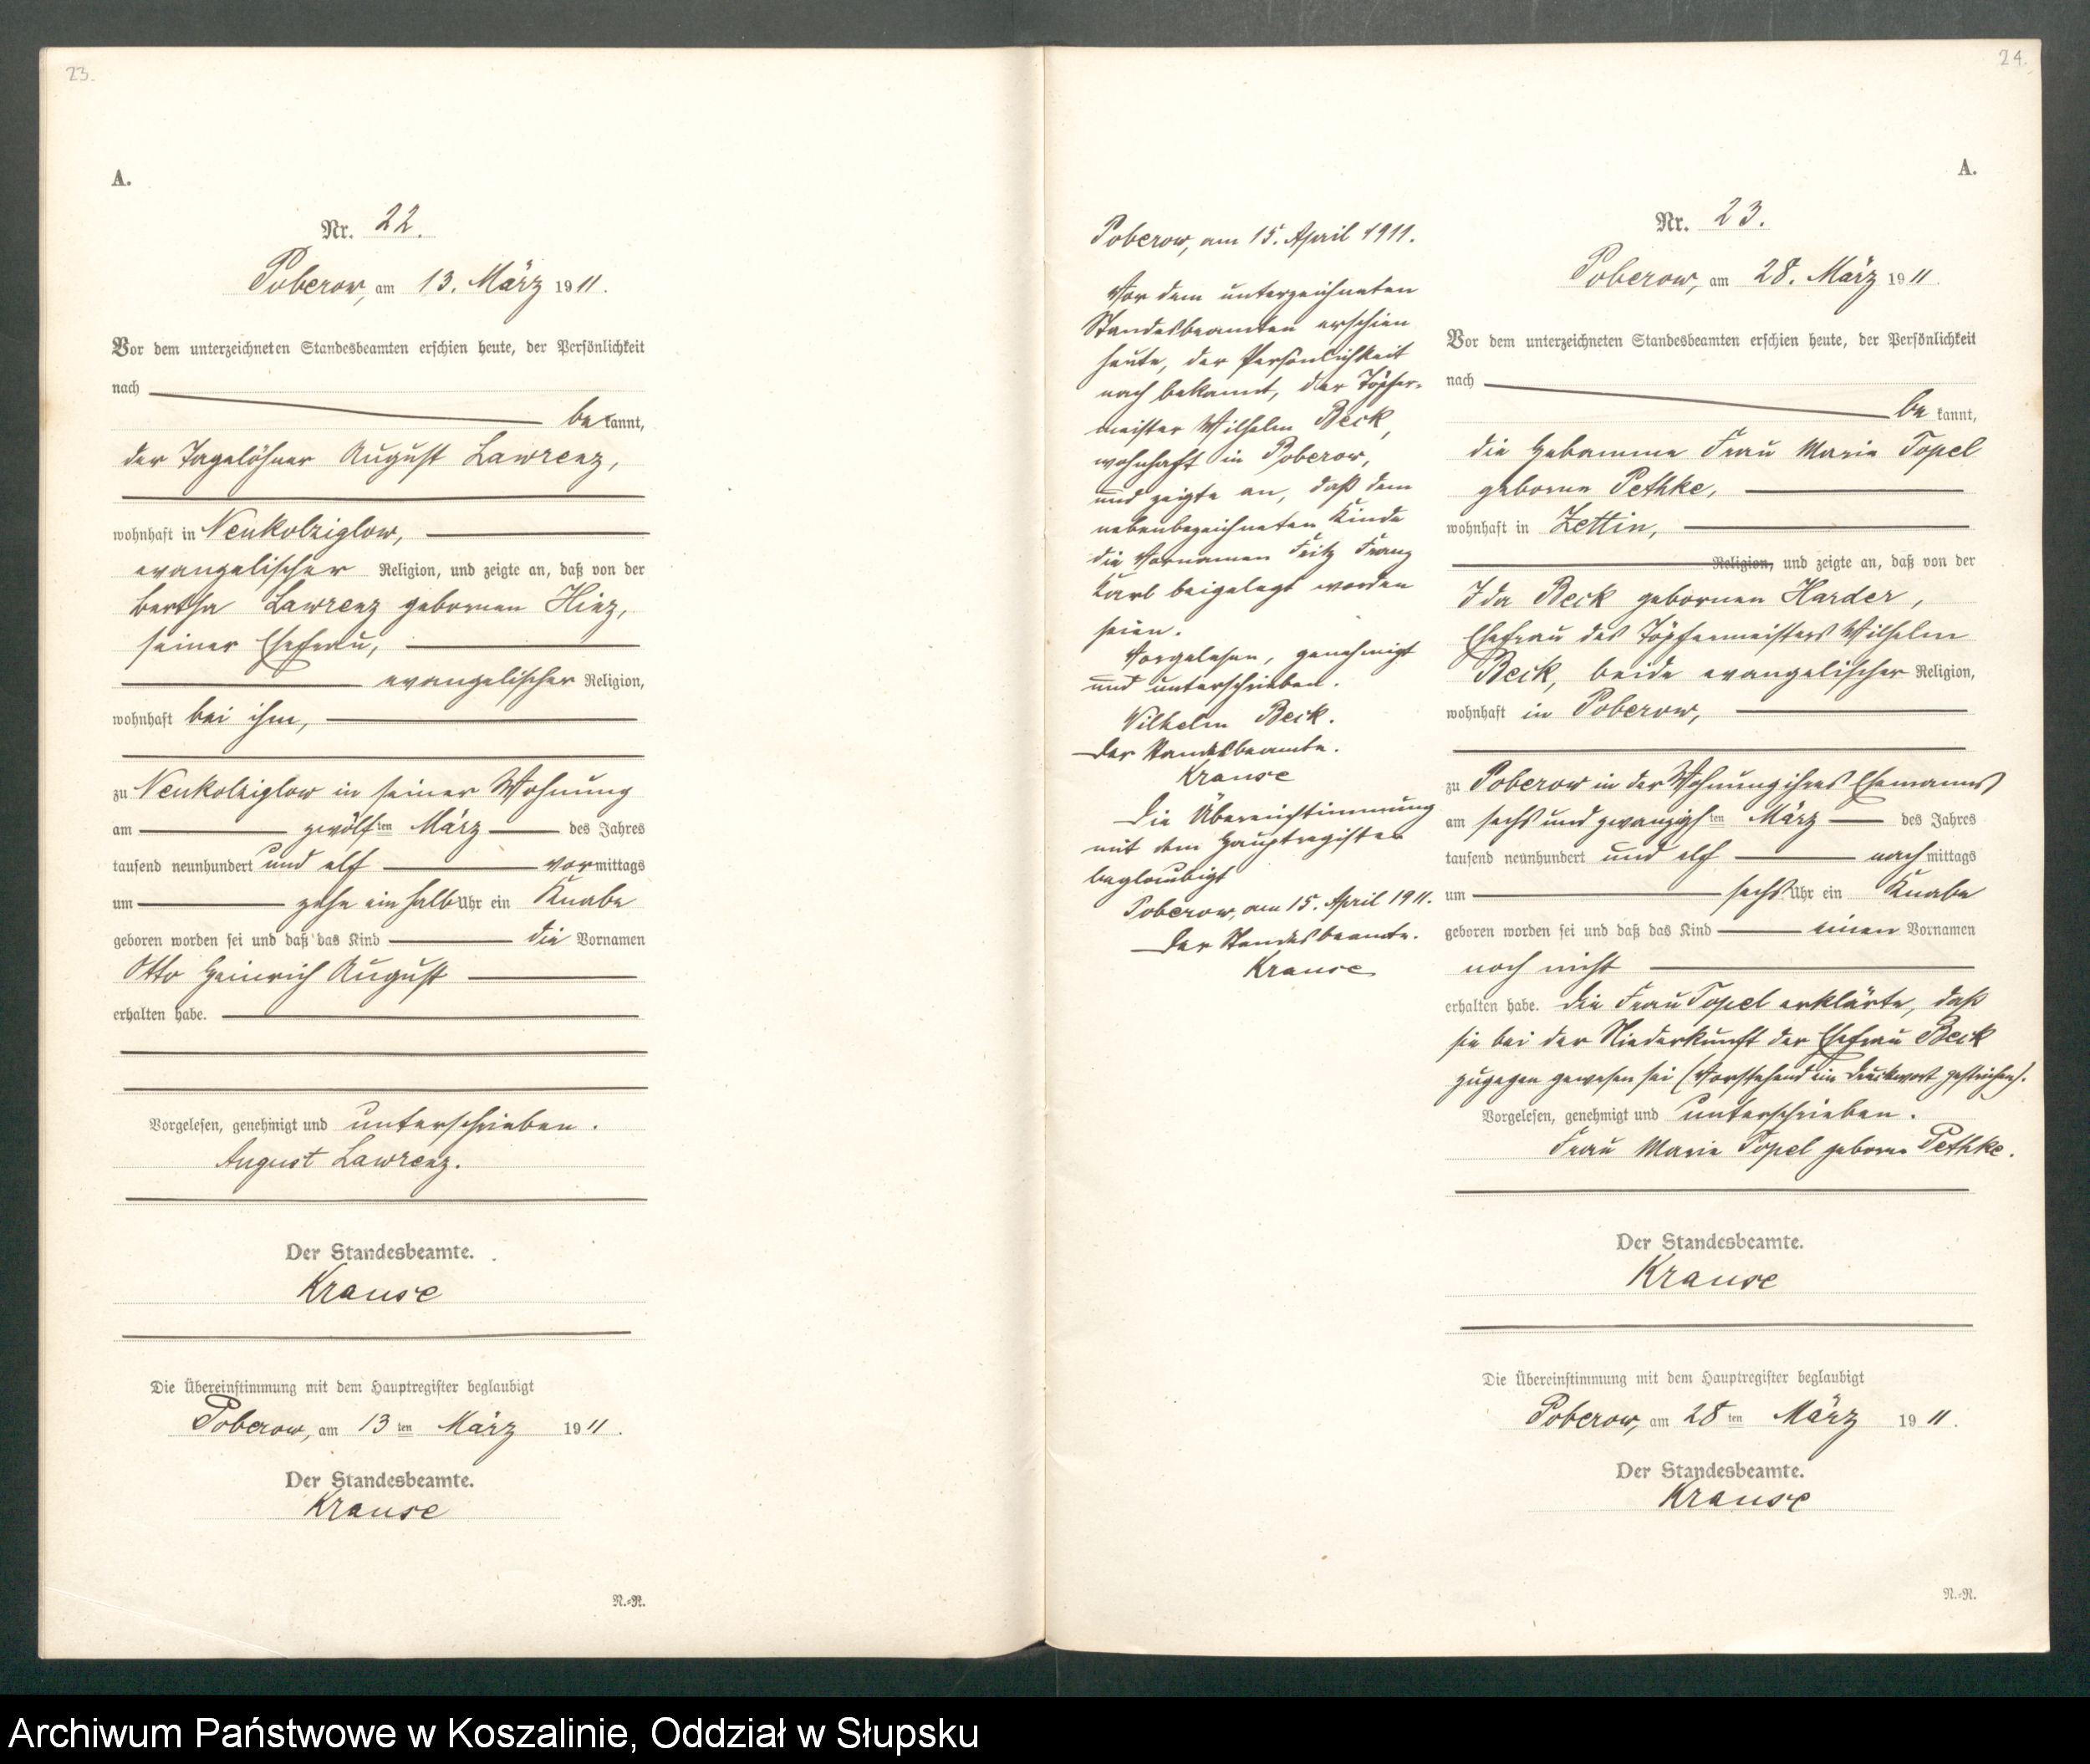 23.
A.
Nr. 22.
Poberow, am 13. März 1911.
Vor dem unterzeichneten Standesbeamten erschien heute, der Persönlichkeit
nach
bekannt,
der Tagelöhner August Lawrenz,
wohnhaft in Neukolziglow,
evangelischer Religion, und zeigte an, daß von der
Bertha Lawrenz gebornen Hinz,
seiner Ehefrau,
evangelischer Religion,
wohnhaft bei ihm,
zu Neukolziglow in seiner Wohnung
am zwölften März des Jahres
tausend neunhundert und elf vormittags
um zehn ein halb Uhr ein Knabe
geboren worden sei und daß das Kind die Vornamen
Otto Heinrich August
erhalten habe.
Vorgelesen, genehmigt und unterschrieben.
August Lawrenz.
Der Standesbeamte.
Krause
Die Übereinstimmung mit dem Hauptregister beglaubigt
Poberow, am 13ten März 1911.
Der Standesbeamte.
Krause
N.-R.
24.
A.
Poberow, am 15. April 1911.
Vor dem unterzeichneten
Standesbeamten erschien
heute, der Persönlichkeit
nach bekannt, der Töpfer-
meister Wilhelm Beck,
wohnhaft in Poberow,
und zeigte an, daß dem
nebenbezeichneten Kinde
die Vornamen Fritz Franz
Karl beigelegt worden
seien.
Vorgelesen, genehmigt
und unterschrieben.
Wilhelm Beck.
Der Standesbeamte.
Krause
Die Übereinstimmung
mit dem Hauptregister
beglaubigt
Poberow, am 15. April 1911.
Der Standesbeamte.
Krause
Nr. 23.
Poberow, am 28. März 1911.
Vor dem unterzeichneten Standesbeamten erschien heute, der Persönlichkeit
nach
bekannt,
die Hebamme Frau Marie Topel
geborne Pethke,
wohnhaft in Zettin,
Religion, und zeigte an, daß von der
Ida Beck gebornen Harder,
Ehefrau des Töpfermeisters Wilhelm
Beck, beide evangelischer Religion,
wohnhaft in Poberow,
zu Poberow in der Wohnung ihres Ehemannes
am sechs und zwanzigsten März des Jahres
tausend neunhundert und elf nachmittags
um sechs Uhr ein Knabe
geboren worden sei und daß das Kind einen Vornamen
noch nicht
erhalten habe. Die Frau Topel erklärte, daß
sie bei der Niederkunft der Ehefrau Beck
zugegen gewesen sei (Vorstehend ein Druckwort gestrichen).
Vorgelesen, genehmigt und unterschrieben.
Frau Marie Topel geborne Pethke.
Der Standesbeamte.
Krause
Die Übereinstimmung mit dem Hauptregister beglaubigt
Poberow, am 28ten März 1911.
Der Standesbeamte.
Krause
N.-R.
Archiwum Państwowe w Koszalinie, Oddział w Słupsku